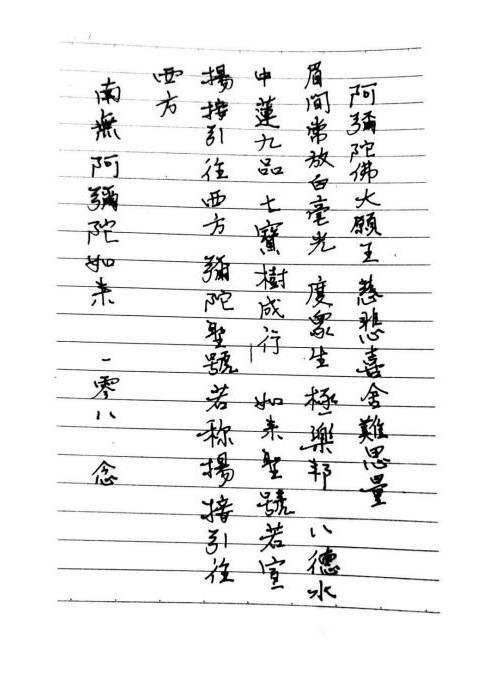 阿彌陀佛大願王 慈悲喜舍難思量
眉間常放白毫光 度眾生 極樂邦 八德水
中蓮九品 七寶樹成行 如来聖號若宣
揚接引往西方 彌陀聖號若称揚接引往
西方
南無阿彌陀如来 一零八念